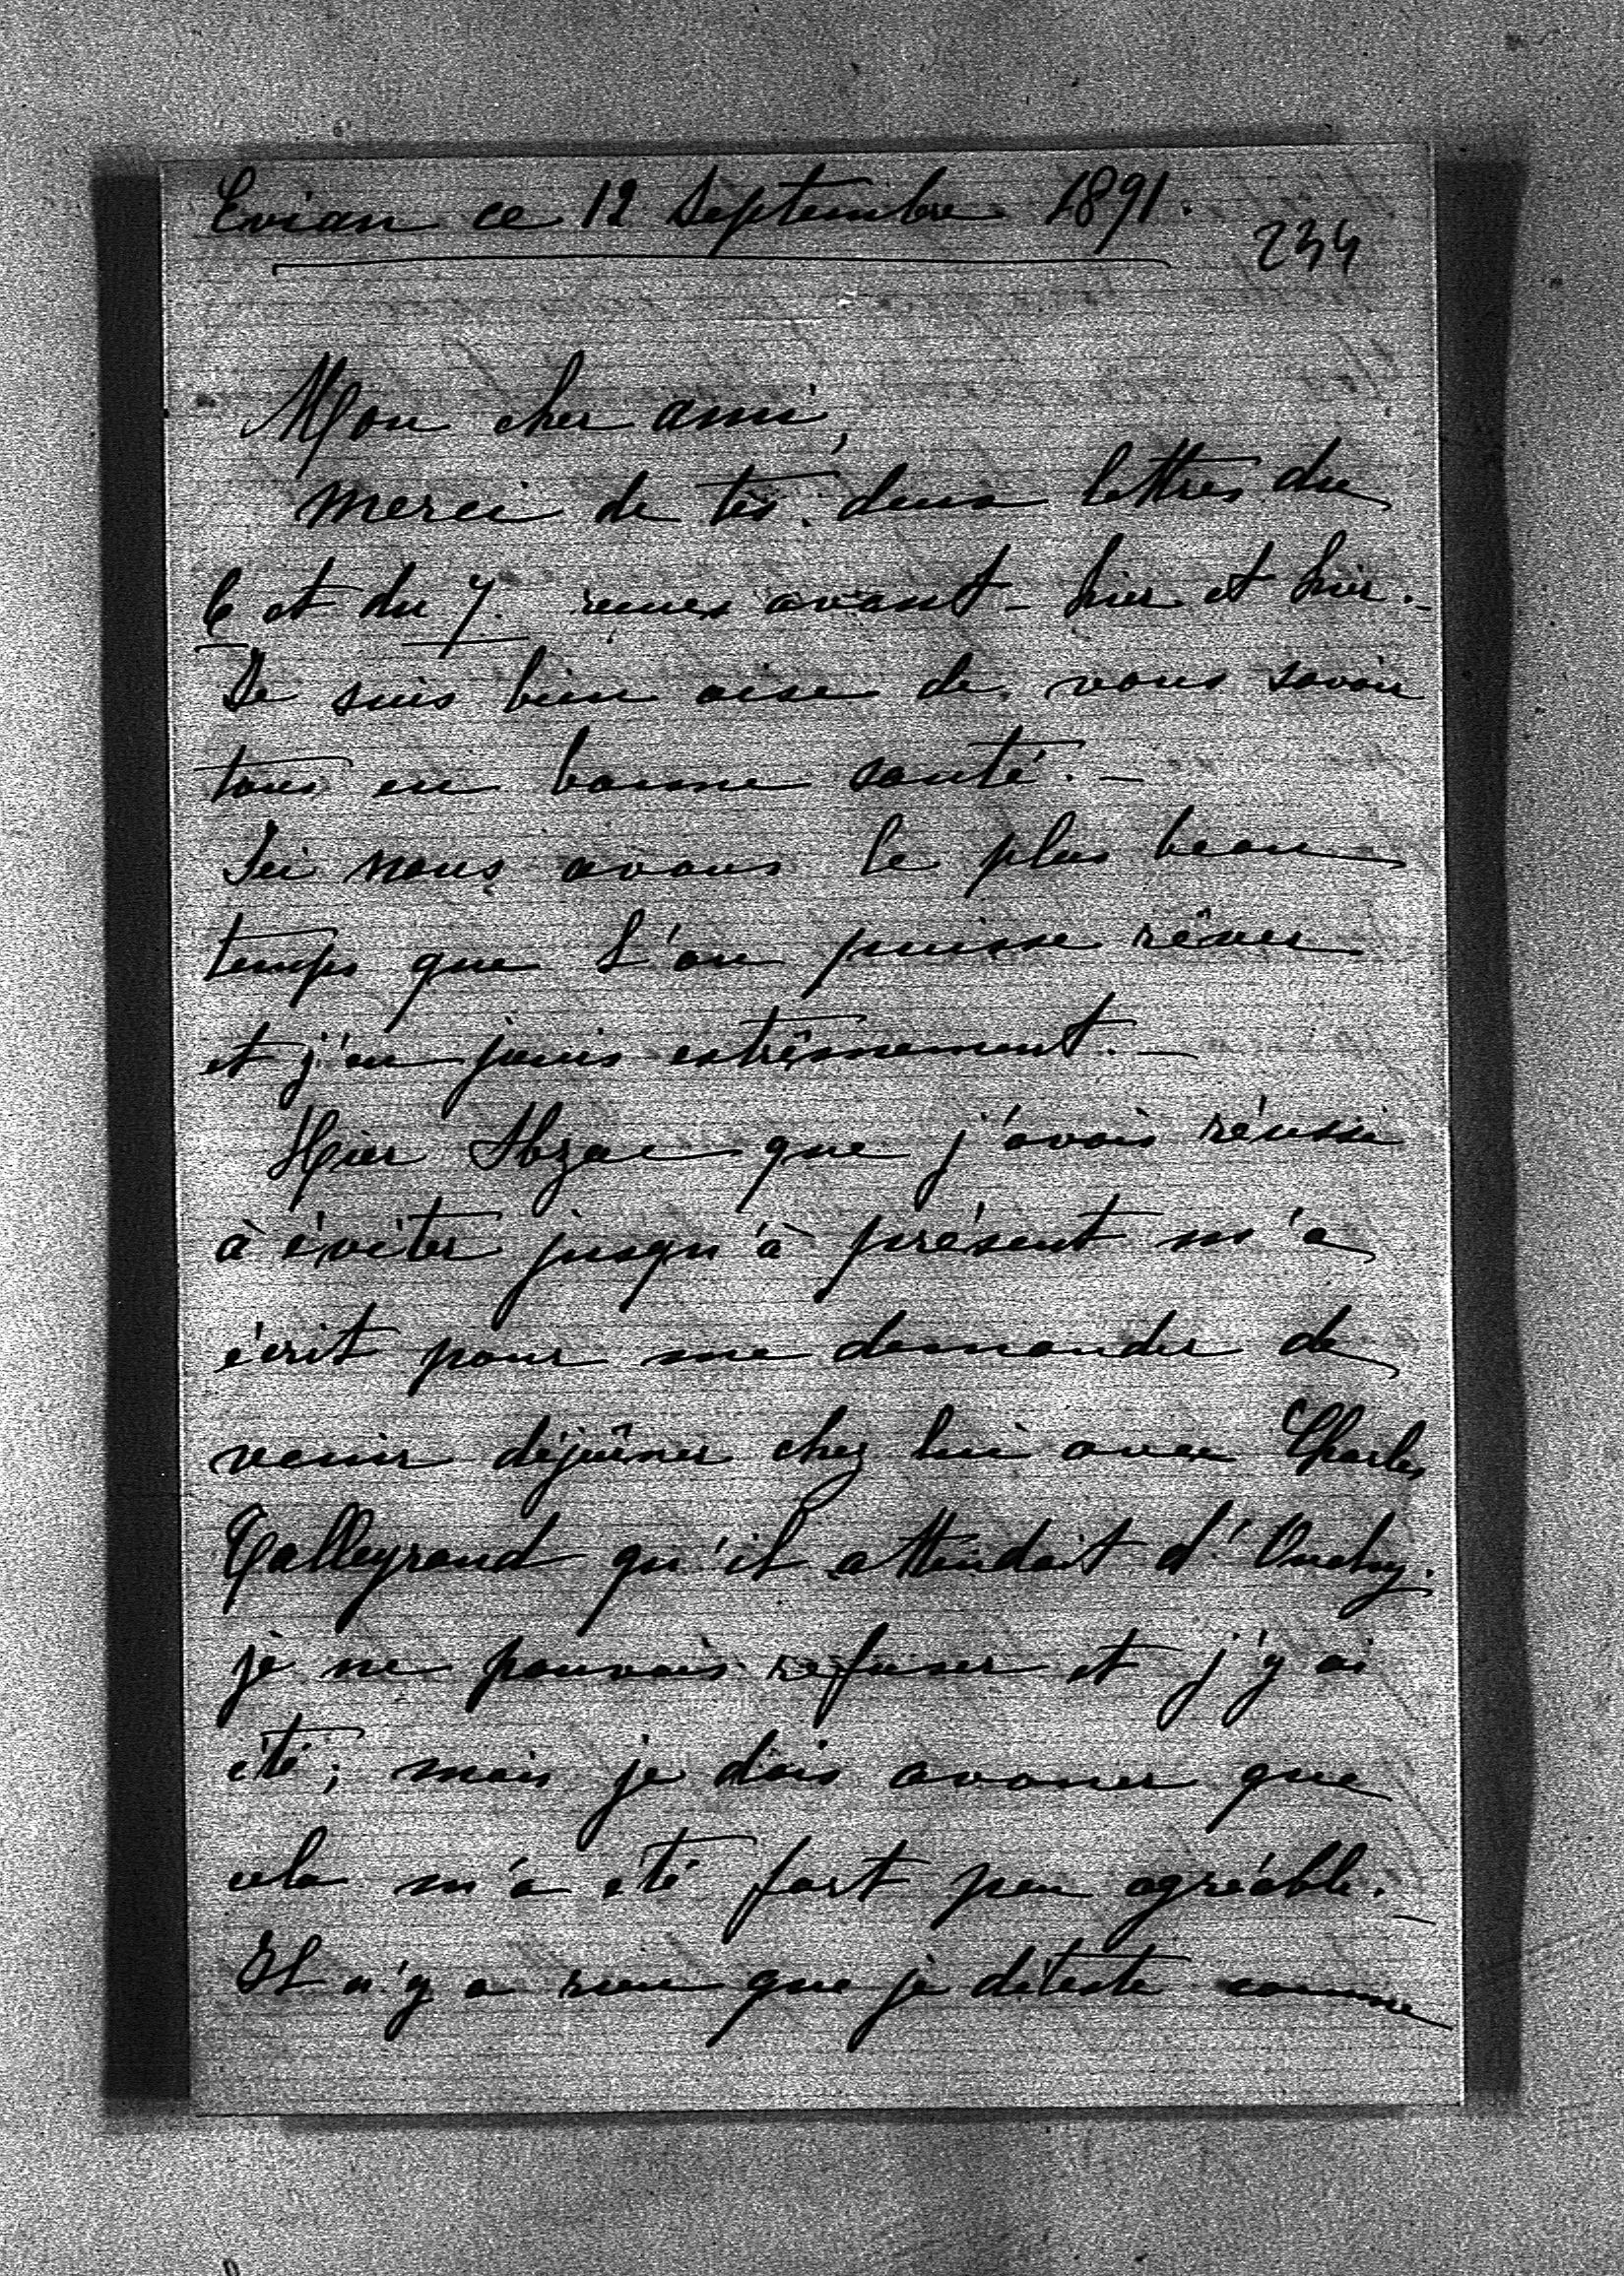 Evian ce 12 Septembre 1891.
234
Mon cher ami,
merci de tes deux lettres du
6 et du 7. reçues avant-hier et hier. -
Je suis bien aise de vous savoir
tous en bonne santé. -
Ici nous avons le plus beau
temps que l'on puisse rêver
et j'en jouis extrêmement. -
Hier Abzac que j'avais réussi
à éviter jusqu'à présent m'a
écrit pour me demander de
venir déjeûner chez lui avec Charles
Talleyrand qu'il attendait d'Ouchy.
je ne pouvais refuser et j'y ai
été; mais je dois avouer que
cela m'a été fort peu agréable. -
Il n'y a rien que je déteste comme